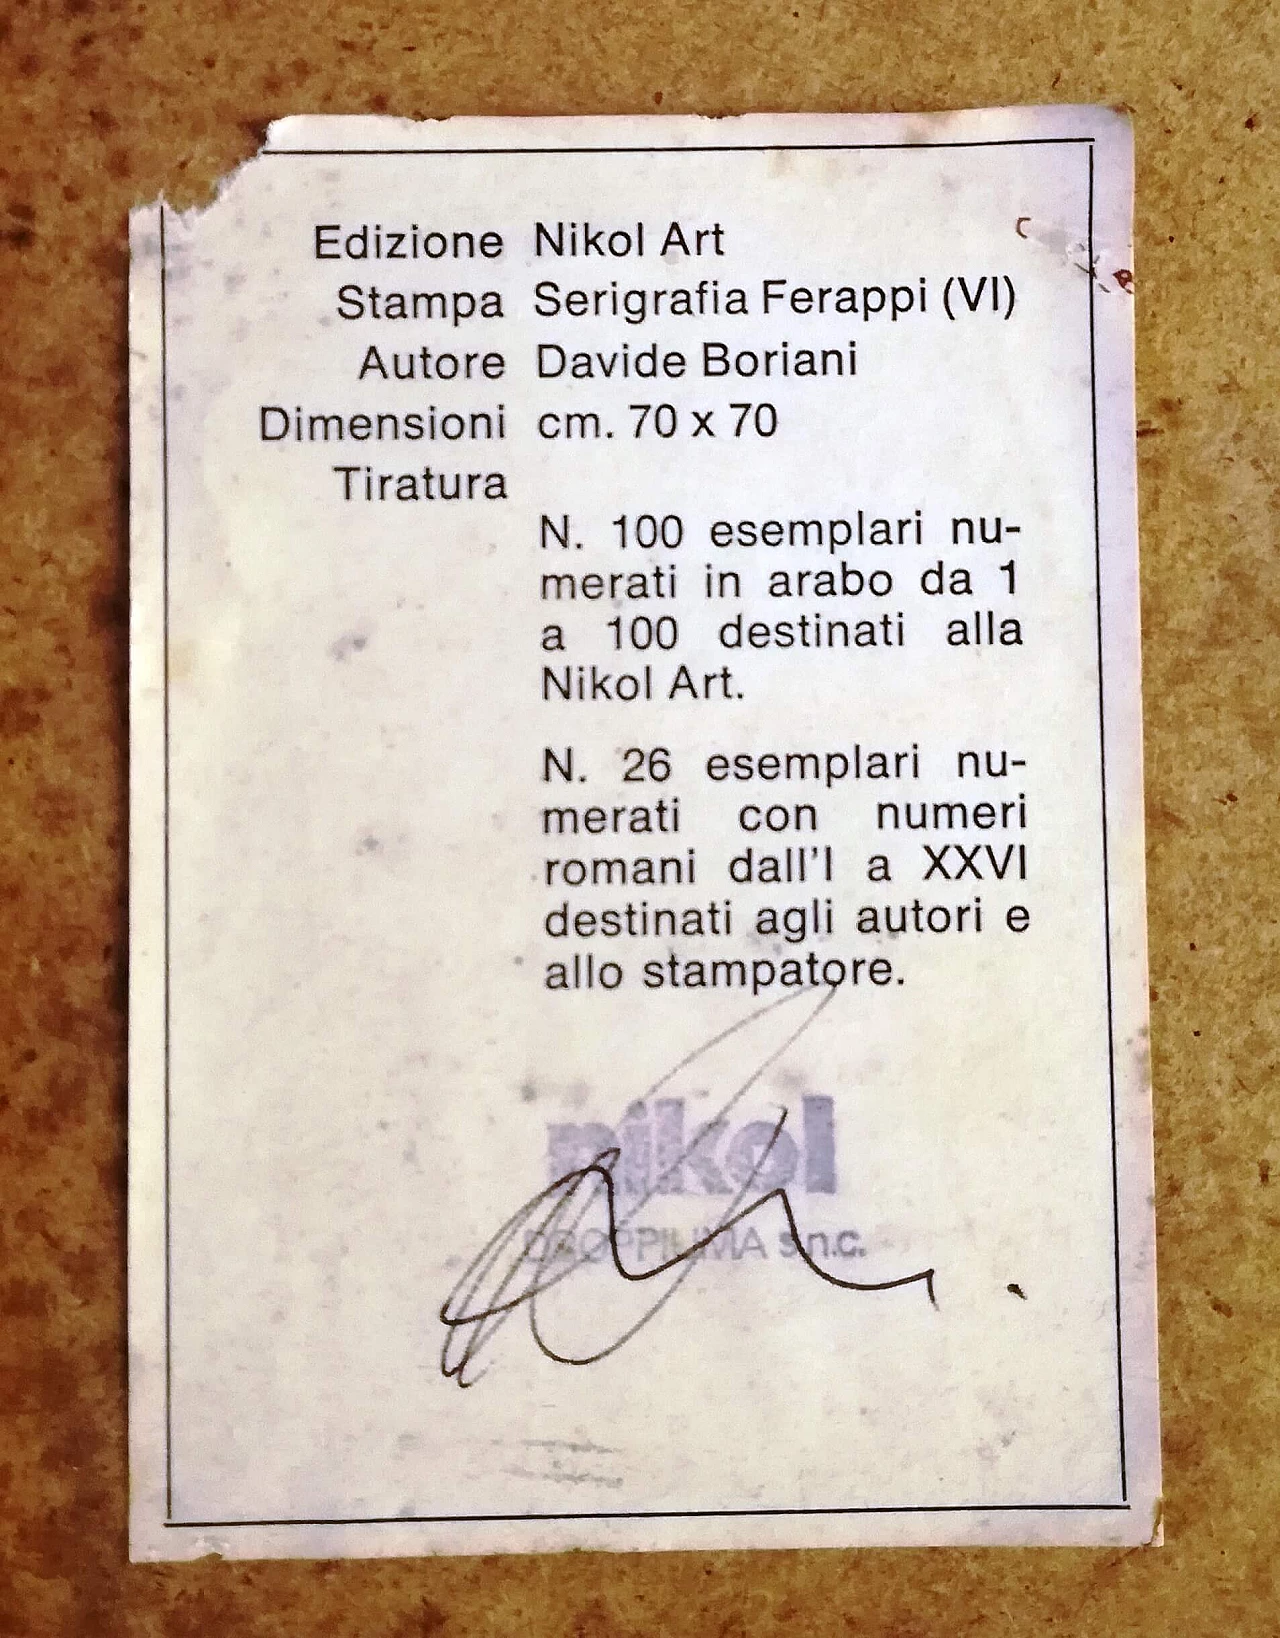 Edizione Nikol Art
Stampa Serigrafia Ferappi (VI)
Autore Davide Boriani
Dimensioni cm. 70 x 70
Tiratura
N. 100 esemplari nu-
merati in arabo da 1
a 100 destinati alla
Nikol Art.
N. 26 esemplari nu-
merati con numeri
romani dall'I a XXVI
destinati agli autori e
allo stampatore.
nikol
s.n.c.